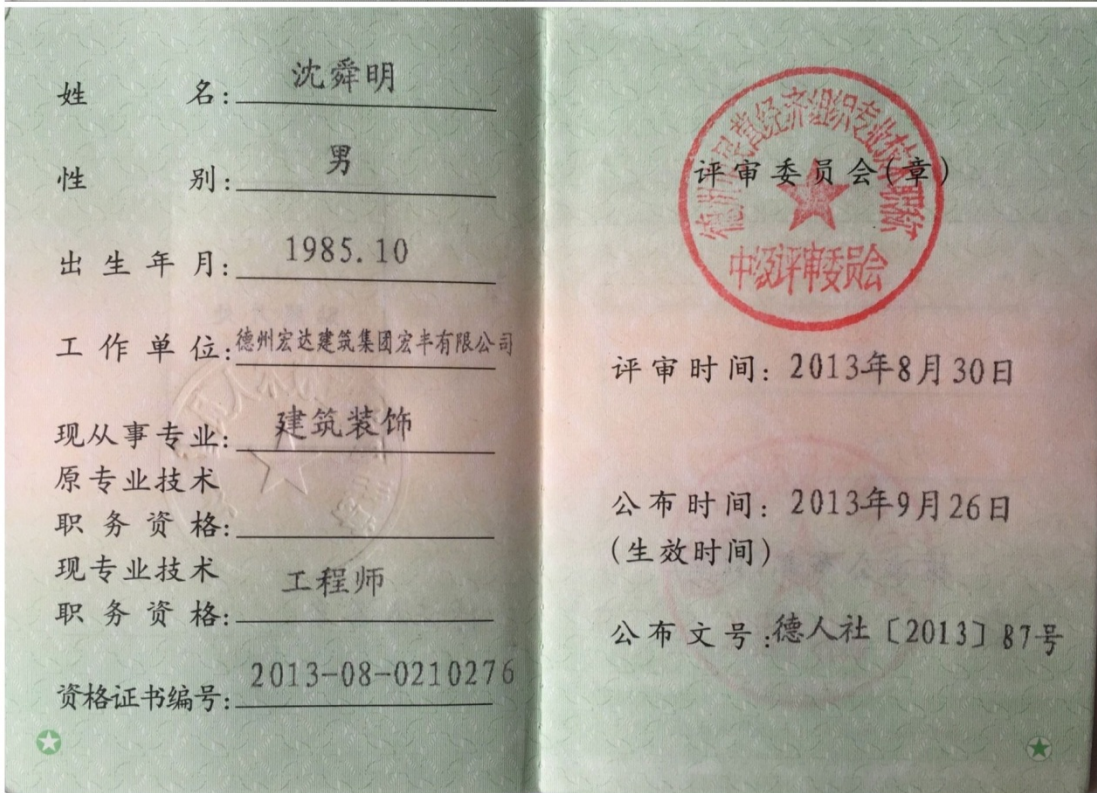 姓 名: 沈舜明
性 别: 男
出 生 年 月: 1985.10
工 作 单 位: 德州宏达建筑集团宏丰有限公司
现从事专业: 建筑装饰
原专业技术
职 务 资 格:
现专业技术
职 务 资 格: 工程师
资格证书编号: 2013-08-0210276
评审委员会(章)
中级评审委员会
评审时间: 2013年8月30日
公布时间: 2013年9月26日
(生效时间)
公布文号:德人社〔2013〕87号